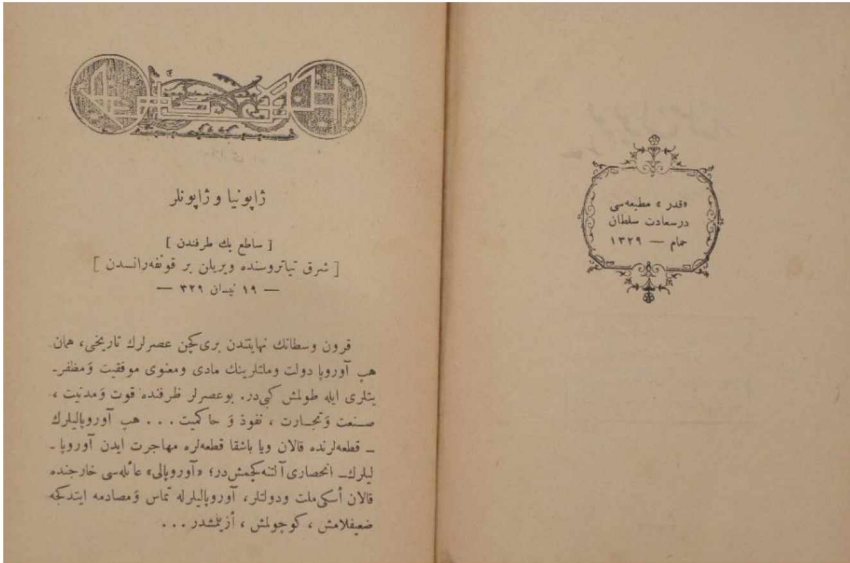 «قدر» مطبعه‌سی
درسعادت سلطان
حمام — ١٣٢٩
ژاپونیا و ژاپونلر
[ ساطع بك طرفندن ]
[ شرق تیاتروسنده ویریلن بر قونفه‌رانسدن ]
— ١٩ نیسان ٣٢٩ —
قرون وسطانك نهایتندن بری كچن عصرلرك تاریخی، همان
هب آوروپا دولت وملتلرینك مادی ومعنوی موفقیت وَمظفر-
یتلری ایله طولمش كبی‌در. بوعصرلر ظرفنده قوت وَمدنیت ،
صنعت وَتجارت ، نفوذ وَ حاكمیت . . . هب آوروپالیلرك
ـ قطعه‌لرنده قالان ویا باشقا قطعه‌لره مهاجرت ایدن آوروپا ـ
لیلرك ـ انحصاری آلتنه كچمش‌در؛ «آوروپالی» عائله‌سی خارجنده
قالان أسكی ملت ودولتلر، آوروپالیلرله تماس وَمصادمه ایتدكجه
ضعیفلامش ، كوچولمش ، أزیلمشدر . . .